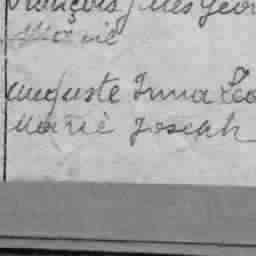 François Jules Geor
Marie
Auguste Irma Léo
Marie Joseph